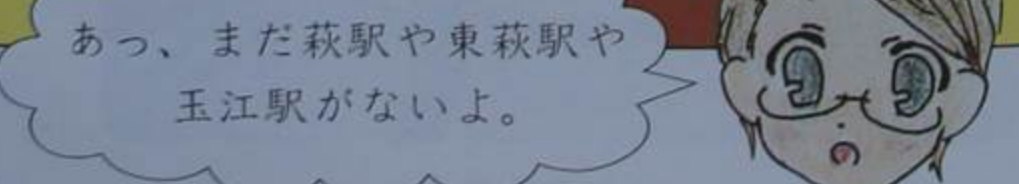 あっ、まだ萩駅や東萩駅や
玉江駅がないよ。